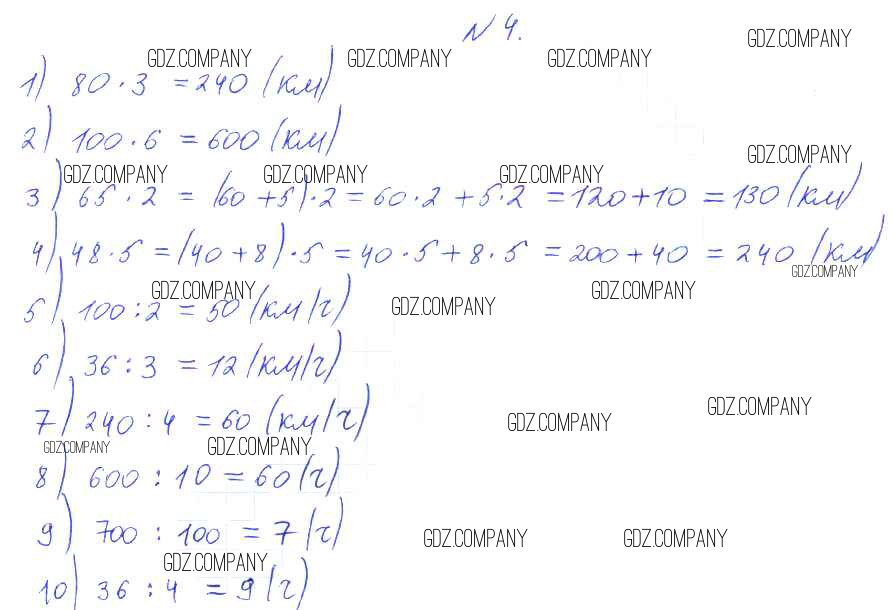 N 4.
GDZ.COMPANY GDZ.COMPANY GDZ.COMPANY GDZ.COMPANY
1) 80 · 3 = 240 (км)
2) 100 · 6 = 600 (км)
GDZ.COMPANY GDZ.COMPANY GDZ.COMPANY GDZ.COMPANY
3) 65 · 2 = (60 + 5) · 2 = 60 · 2 + 5 · 2 = 120 + 10 = 130 (км)
4) 48 · 5 = (40 + 8) · 5 = 40 · 5 + 8 · 5 = 200 + 40 = 240 (км)
GDZ.COMPANY GDZ.COMPANY GDZ.COMPANY GDZ.COMPANY
5) 100 : 2 = 50 (км/ч)
6) 36 : 3 = 12 (км/ч)
7) 240 : 4 = 60 (км/ч)
GDZ.COMPANY GDZ.COMPANY GDZ.COMPANY GDZ.COMPANY
8) 600 : 10 = 60 (ч)
9) 700 : 100 = 7 (ч)
GDZ.COMPANY GDZ.COMPANY GDZ.COMPANY
10) 36 : 4 = 9 (ч)